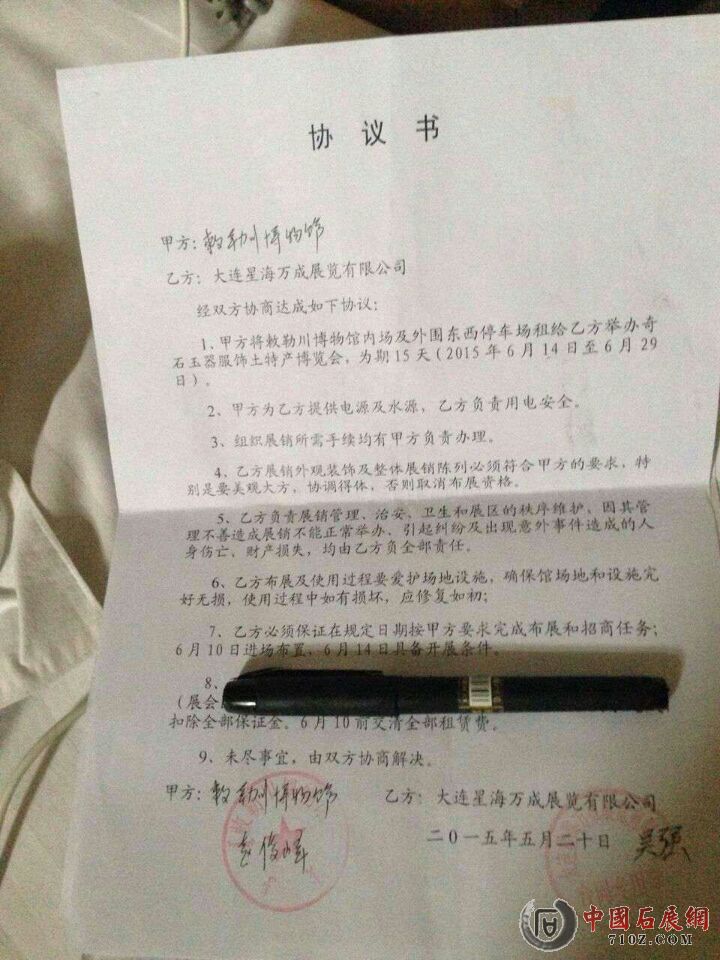 协 议 书
甲方：敕勒川博物馆
乙方：大连星海万成展览有限公司
经双方协商达成如下协议：
1、甲方将敕勒川博物馆内场及外围东西停车场租给乙方举办奇
石玉器服饰土特产博览会，为期15天（2015年6月14日至6月29
日）。
2、甲方为乙方提供电源及水源，乙方负责用电安全。
3、组织展销所需手续均有甲方负责办理。
4、乙方展销外观装饰及整体展销陈列必须符合甲方的要求，特
别是要美观大方，协调得体，否则取消布展资格。
5、乙方负责展销管理、治安、卫生和展区的秩序维护、因其管
理不善造成展销不能正常举办、引起纠纷及出现意外事件造成的人
身伤亡、财产损失，均由乙方负全部责任。
6、乙方布展及使用过程要爱护场地设施，确保馆场地和设施完
好无损，使用过程中如有损坏，应修复如初；
7、乙方必须保证在规定日期按甲方要求完成布展和招商任务；
6月10日进场布置，6月14日具备开展条件。
8、
（展会
扣除全部保证金。6月10前交清全部租赁费。
9、未尽事宜，由双方协商解决。
甲方：敕勒川博物馆 乙方：大连星海万成展览有限公司
二〇一五年五月二十日 吴强
中國石展網
710Z.COM